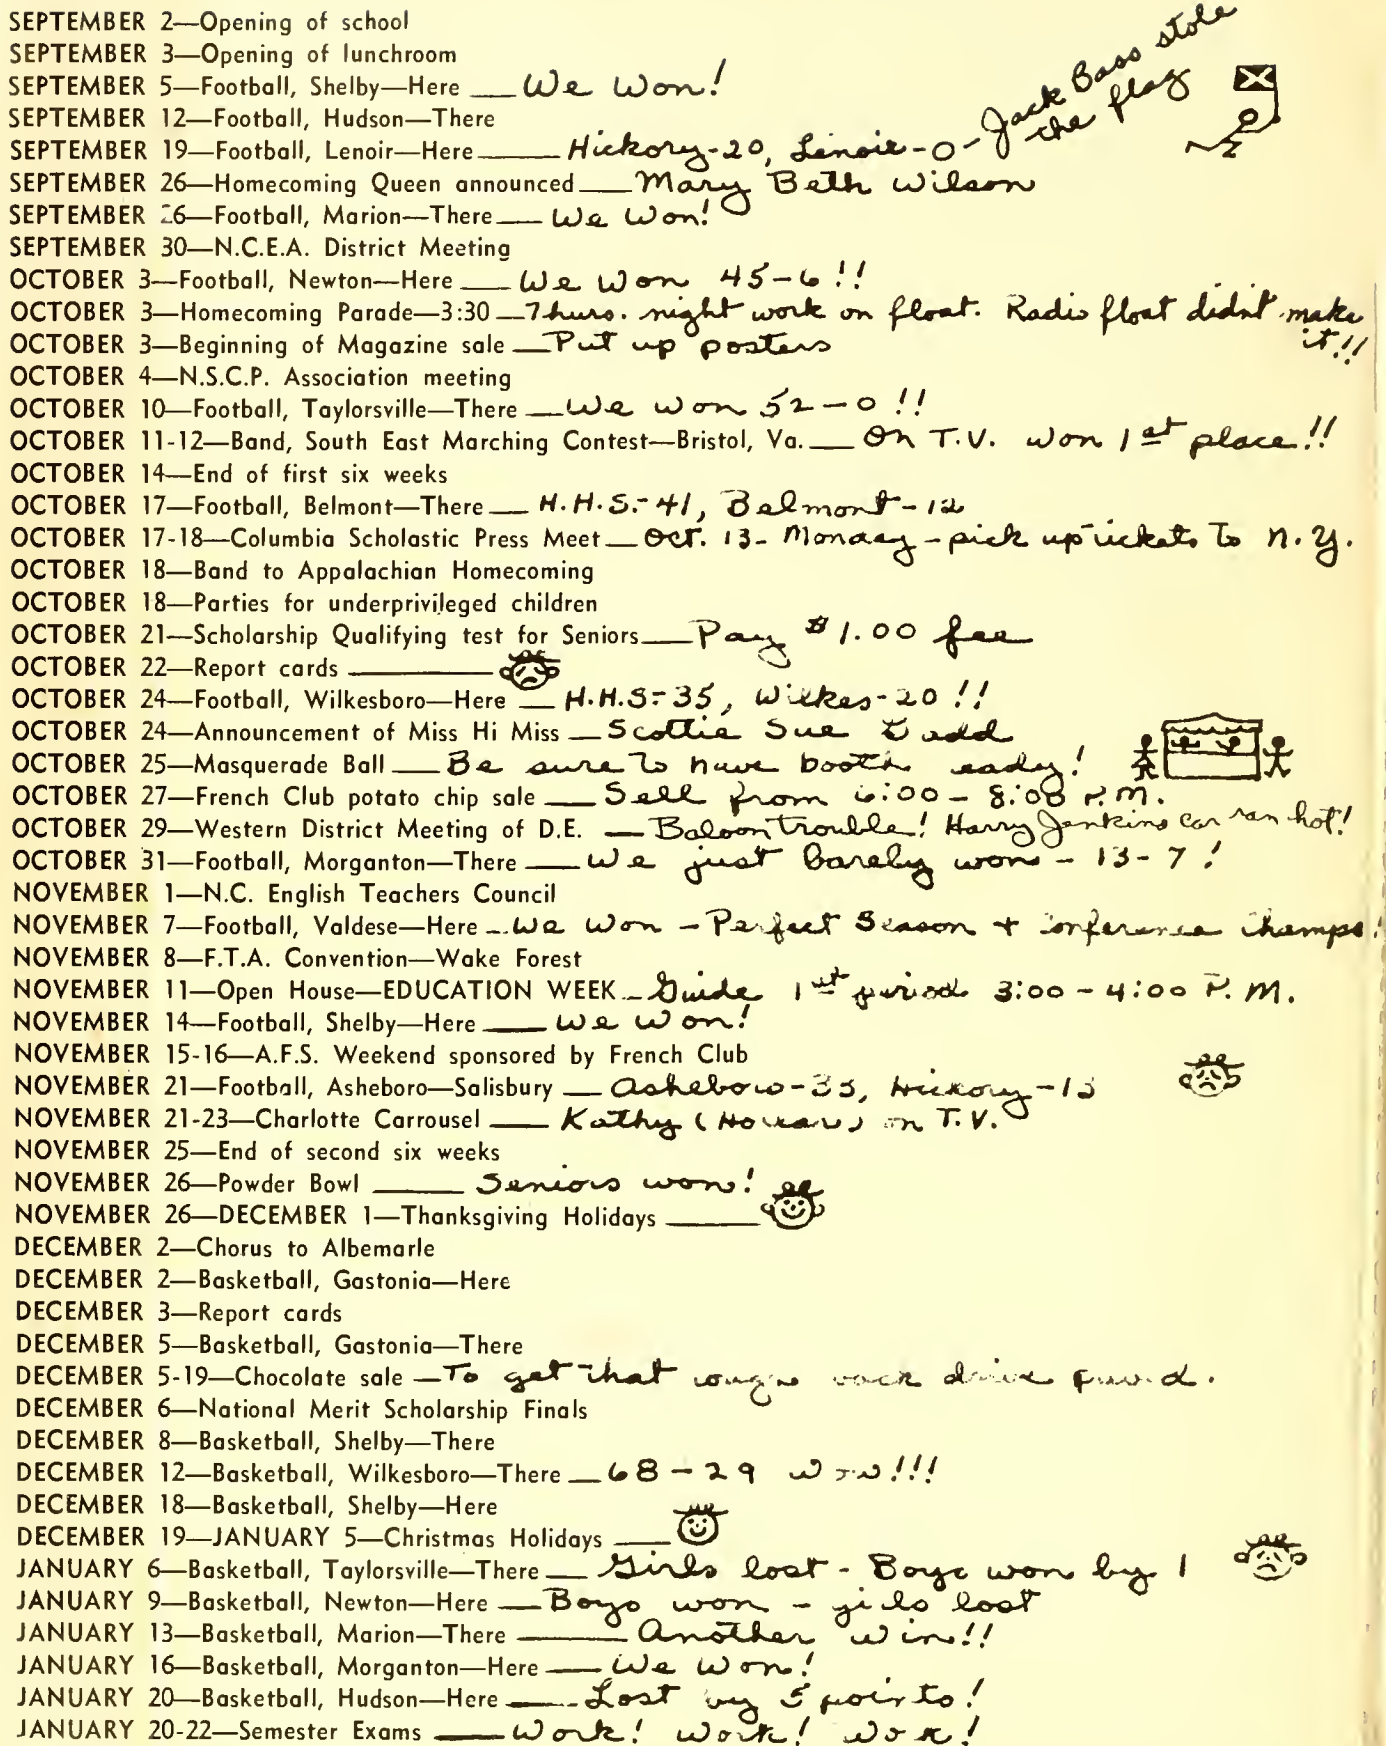 SEPTEMBER 2—Opening of school
SEPTEMBER 3—Opening of lunchroom
SEPTEMBER 5—Football, Shelby—Here — We Won!
SEPTEMBER 12—Football, Hudson—There
SEPTEMBER 19—Football, Lenoir—Here — Hickory-20, Lenoir-0- Jack Bass stole
the flag
SEPTEMBER 26—Homecoming Queen announced — Mary Beth Wilson
SEPTEMBER 26—Football, Marion—There — We Won!
SEPTEMBER 30—N.C.E.A. District Meeting
OCTOBER 3—Football, Newton—Here — We Won 45-6!!
OCTOBER 3—Homecoming Parade—3:30 — Thurs. night work on float. Radio float didn't make
it!!
OCTOBER 3—Beginning of Magazine sale — Put up posters
OCTOBER 4—N.S.C.P. Association meeting
OCTOBER 10—Football, Taylorsville—There — We won 52-0!!
OCTOBER 11-12—Band, South East Marching Contest—Bristol, Va. — On T.V. won 1st place!!
OCTOBER 14—End of first six weeks
OCTOBER 17—Football, Belmont—There — H.H.S.-41, Belmont-12
OCTOBER 17-18—Columbia Scholastic Press Meet — Oct. 13- Monday - pick up tickets to N.Y.
OCTOBER 18—Band to Appalachian Homecoming
OCTOBER 18—Parties for underprivileged children
OCTOBER 21—Scholarship Qualifying test for Seniors — Pay $1.00 fee
OCTOBER 22—Report cards
OCTOBER 24—Football, Wilkesboro—Here — H.H.S-35, Wilkes-20!!
OCTOBER 24—Announcement of Miss Hi Miss — Scottie Sue
OCTOBER 25—Masquerade Ball — Be sure to have booth ready!
OCTOBER 27—French Club potato chip sale — Sell from 6:00-8:00 P.M.
OCTOBER 29—Western District Meeting of D.E. — Baloon trouble! Harry Jenkins car ran hot!
OCTOBER 31—Football, Morganton—There — We just barely won - 13-7!
NOVEMBER 1—N.C. English Teachers Council
NOVEMBER 7—Football, Valdese—Here — We Won - Perfect Season + Conference Champs!
NOVEMBER 8—F.T.A. Convention—Wake Forest
NOVEMBER 11—Open House—EDUCATION WEEK — Guide 1st period 3:00-4:00 P.M.
NOVEMBER 14—Football, Shelby—Here — We Won!
NOVEMBER 15-16—A.F.S. Weekend sponsored by French Club
NOVEMBER 21—Football, Asheboro—Salisbury — Asheboro- Hickory-
NOVEMBER 21-23—Charlotte Carrousel — Kathy on T.V.
NOVEMBER 25—End of second six weeks
NOVEMBER 26—Powder Bowl — Seniors won!
NOVEMBER 26—DECEMBER 1—Thanksgiving Holidays
DECEMBER 2—Chorus to Albemarle
DECEMBER 2—Basketball, Gastonia—Here
DECEMBER 3—Report cards
DECEMBER 5—Basketball, Gastonia—There
DECEMBER 5-19—Chocolate sale — To get that drive paved.
DECEMBER 6—National Merit Scholarship Finals
DECEMBER 8—Basketball, Shelby—There
DECEMBER 12—Basketball, Wilkesboro—There — 68-29 wow!!!
DECEMBER 18—Basketball, Shelby—Here
DECEMBER 19—JANUARY 5—Christmas Holidays
JANUARY 6—Basketball, Taylorsville—There — Girls lost - Boys won by 1
JANUARY 9—Basketball, Newton—Here — Boys won - girls lost
JANUARY 13—Basketball, Marion—There — Another win!!
JANUARY 16—Basketball, Morganton—Here — We Won!
JANUARY 20—Basketball, Hudson—Here — Lost by 5 points!
JANUARY 20-22—Semester Exams — Work! Work! Work!